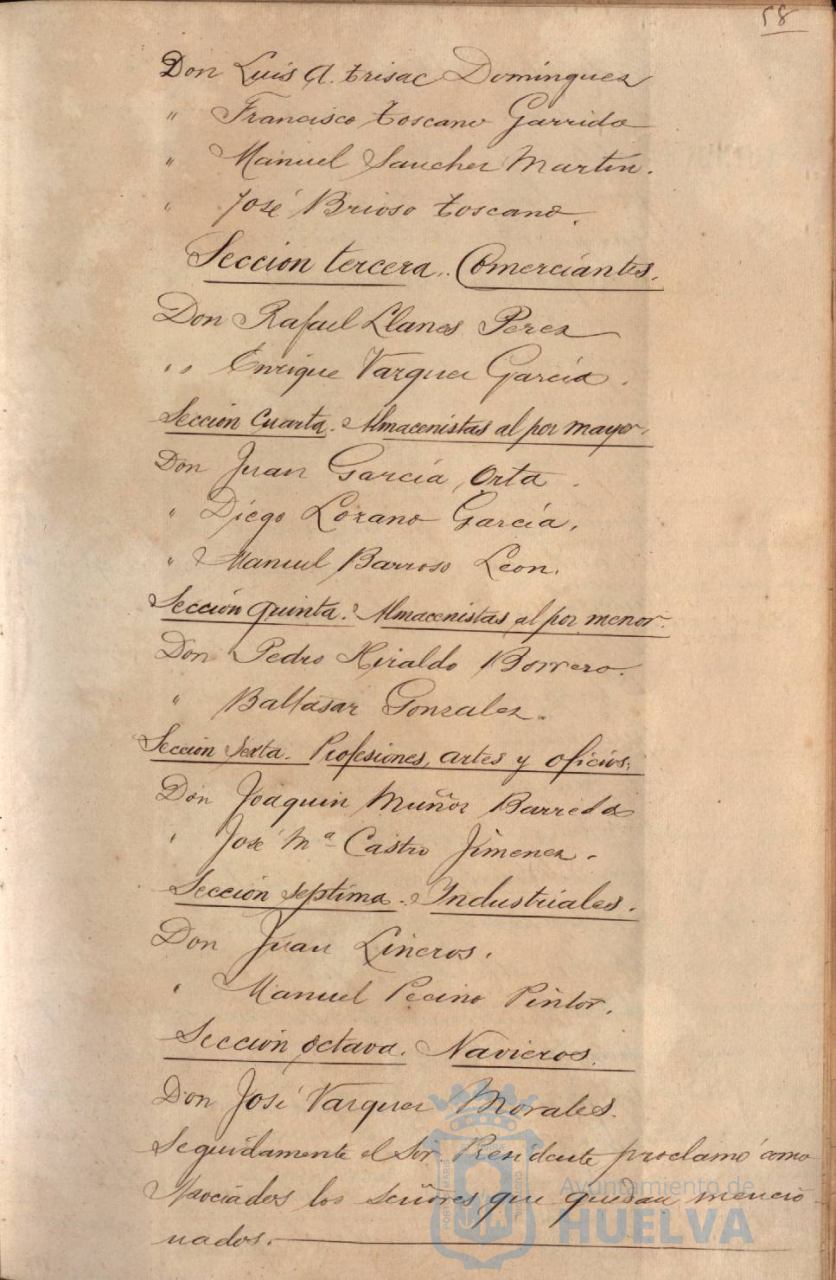 58
Don Luis A. Trisac Dominguez
" Francisco Toscano Garrido
" Manuel Sanchez Martin.
" José Brioso Toscano.
Seccion tercera. Comerciantes.
Don Rafael Llanes Perez
" Enrique Vazquez García.
Sección Cuarta. Almacenistas al por mayor.
Don Juan García Orta.
" Diego Lozano García.
" Manuel Barroso Leon.
Sección quinta. Almacenistas al por menor.
Don Pedro Hiraldo Borrero.
" Baltasar Gonzalez.
Sección Sexta. Profesiones, artes y oficios.
Don Joaquin Muñoz Barreda
" José Mª Castro Jimenez.
Sección septima. Industriales.
Don Juan Lineros.
" Manuel Pecino Pintor.
Sección octava. Navieros.
Don José Vazquez Morales.
Seguidamente el Sor Presidente proclamó como
Asociados los señores que quedan mencio
nados.
Ayuntamiento de
HUELVA